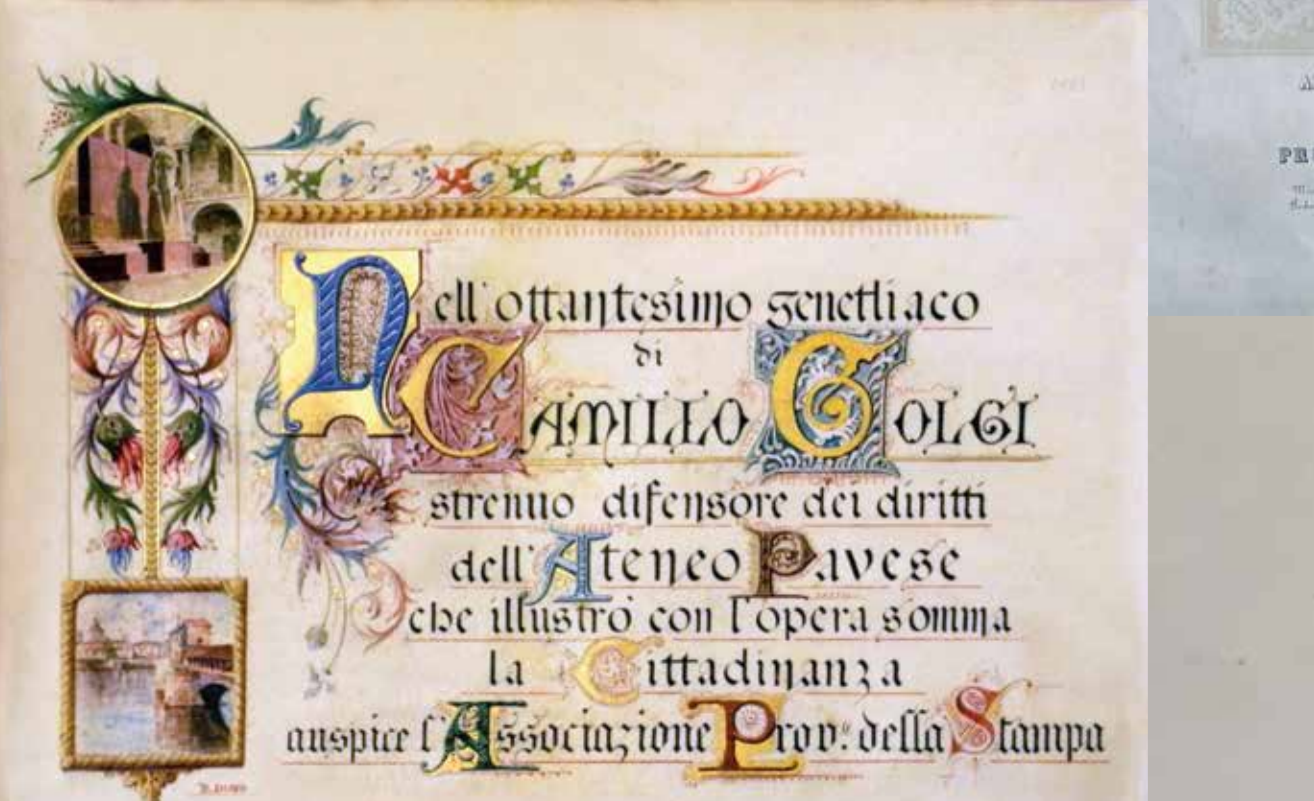 Nell'ottantesimo genetliaco
di
CAMILLO GOLGI
strenuo difensore dei diritti
dell'Ateneo Pavese
che illustrò con l'opera somma
la Cittadinanza
auspice l'Associazione Prov.e della Stampa